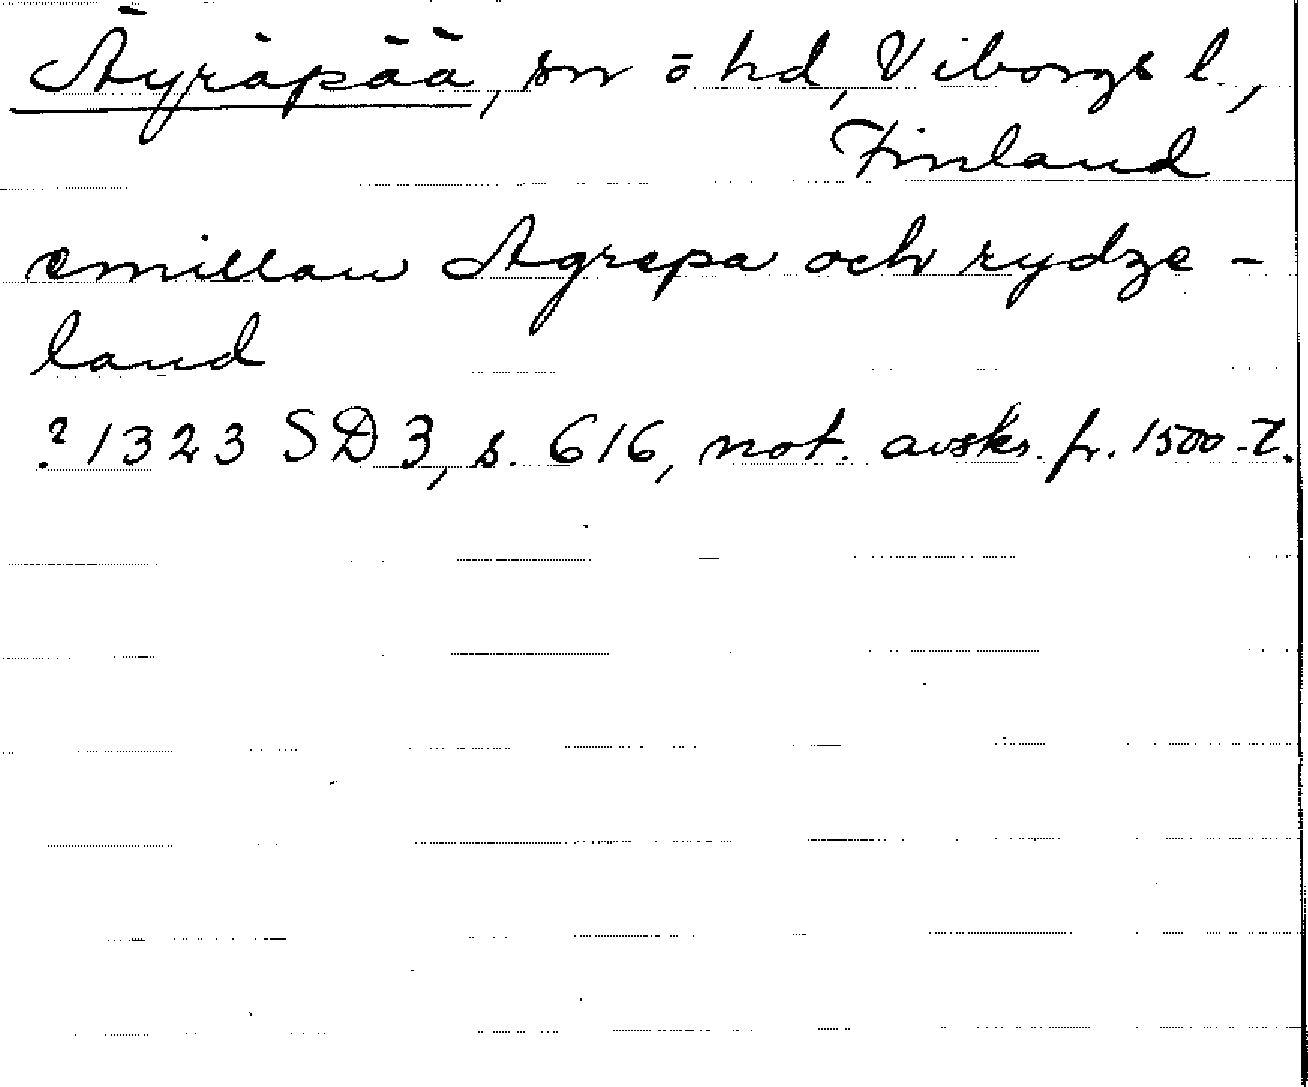 Äyräpää, sn ö hd, Viborgs l.,
Finland
emillan Agrepa och rydze-
land
? 1323 SD 3, s. 616, not. avskr. fr. 1500-t.